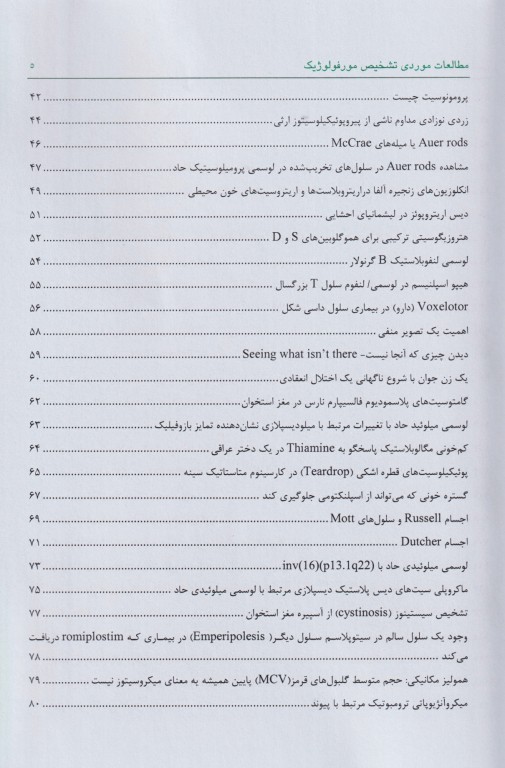 مطالعات موردی تشخیص مورفولوژیک ۵
پرومونوسیت چیست ۴۲
زردی نوزادی مداوم ناشی از پیروپوئیکیلوسیتوز ارثی ۴۴
Auer rods یا میله‌های McCrae ۴۶
مشاهده Auer rods در سلول‌های تخریب‌شده در لوسمی پرومیلوسیتیک حاد ۴۷
انکلوزیون‌های زنجیره آلفا دراریتروبلاست‌ها و اریتروسیت‌های خون محیطی ۴۹
دیس اریتروپوئز در لیشمانیای احشایی ۵۱
هتروزیگوسیتی ترکیبی برای هموگلوبین‌های S و D ۵۲
لوسمی لنفوبلاستیک B گرنولار ۵۴
هیپو اسپلنیسم در لوسمی/ لنفوم سلول T بزرگسال ۵۵
Voxelotor (دارو) در بیماری سلول داسی شکل ۵۶
اهمیت یک تصویر منفی ۵۸
دیدن چیزی که آنجا نیست- Seeing what isn't there ۵۹
یک زن جوان با شروع ناگهانی یک اختلال انعقادی ۶۰
گامتوسیت‌های پلاسمودیوم فالسیپارم نارس در مغز استخوان ۶۲
لوسمی میلوئید حاد با تغییرات مرتبط با میلودیسپلازی نشان‌دهنده تمایز بازوفیلیک ۶۳
کم‌خونی مگالوبلاستیک پاسخگو به Thiamine در یک دختر عراقی ۶۴
پوئیکیلوسیت‌های قطره اشکی (Teardrop) در کارسینوم متاستاتیک سینه ۶۵
گستره خونی که می‌تواند از اسپلنکتومی جلوگیری کند ۶۷
اجسام Russell و سلول‌های Mott ۶۹
اجسام Dutcher ۷۱
لوسمی میلوئیدی حاد با inv(16)(p13.1q22) ۷۳
ماکروپلی سیت‌های دیس پلاستیک دیسپلازی مرتبط با لوسمی میلوئیدی حاد ۷۵
تشخیص سیستینوز (cystinosis) از آسپیره مغز استخوان ۷۷
وجود یک سلول سالم در سیتوپلاسم سلول دیگر( Emperipolesis) در بیماری که romiplostim دریافت
می‌کند ۷۸
همولیز مکانیکی: حجم متوسط گلبول‌های قرمز(MCV) پایین همیشه به معنای میکروسیتوز نیست ۷۹
میکروآنژیوپاتی ترومبوتیک مرتبط با پیوند ۸۰